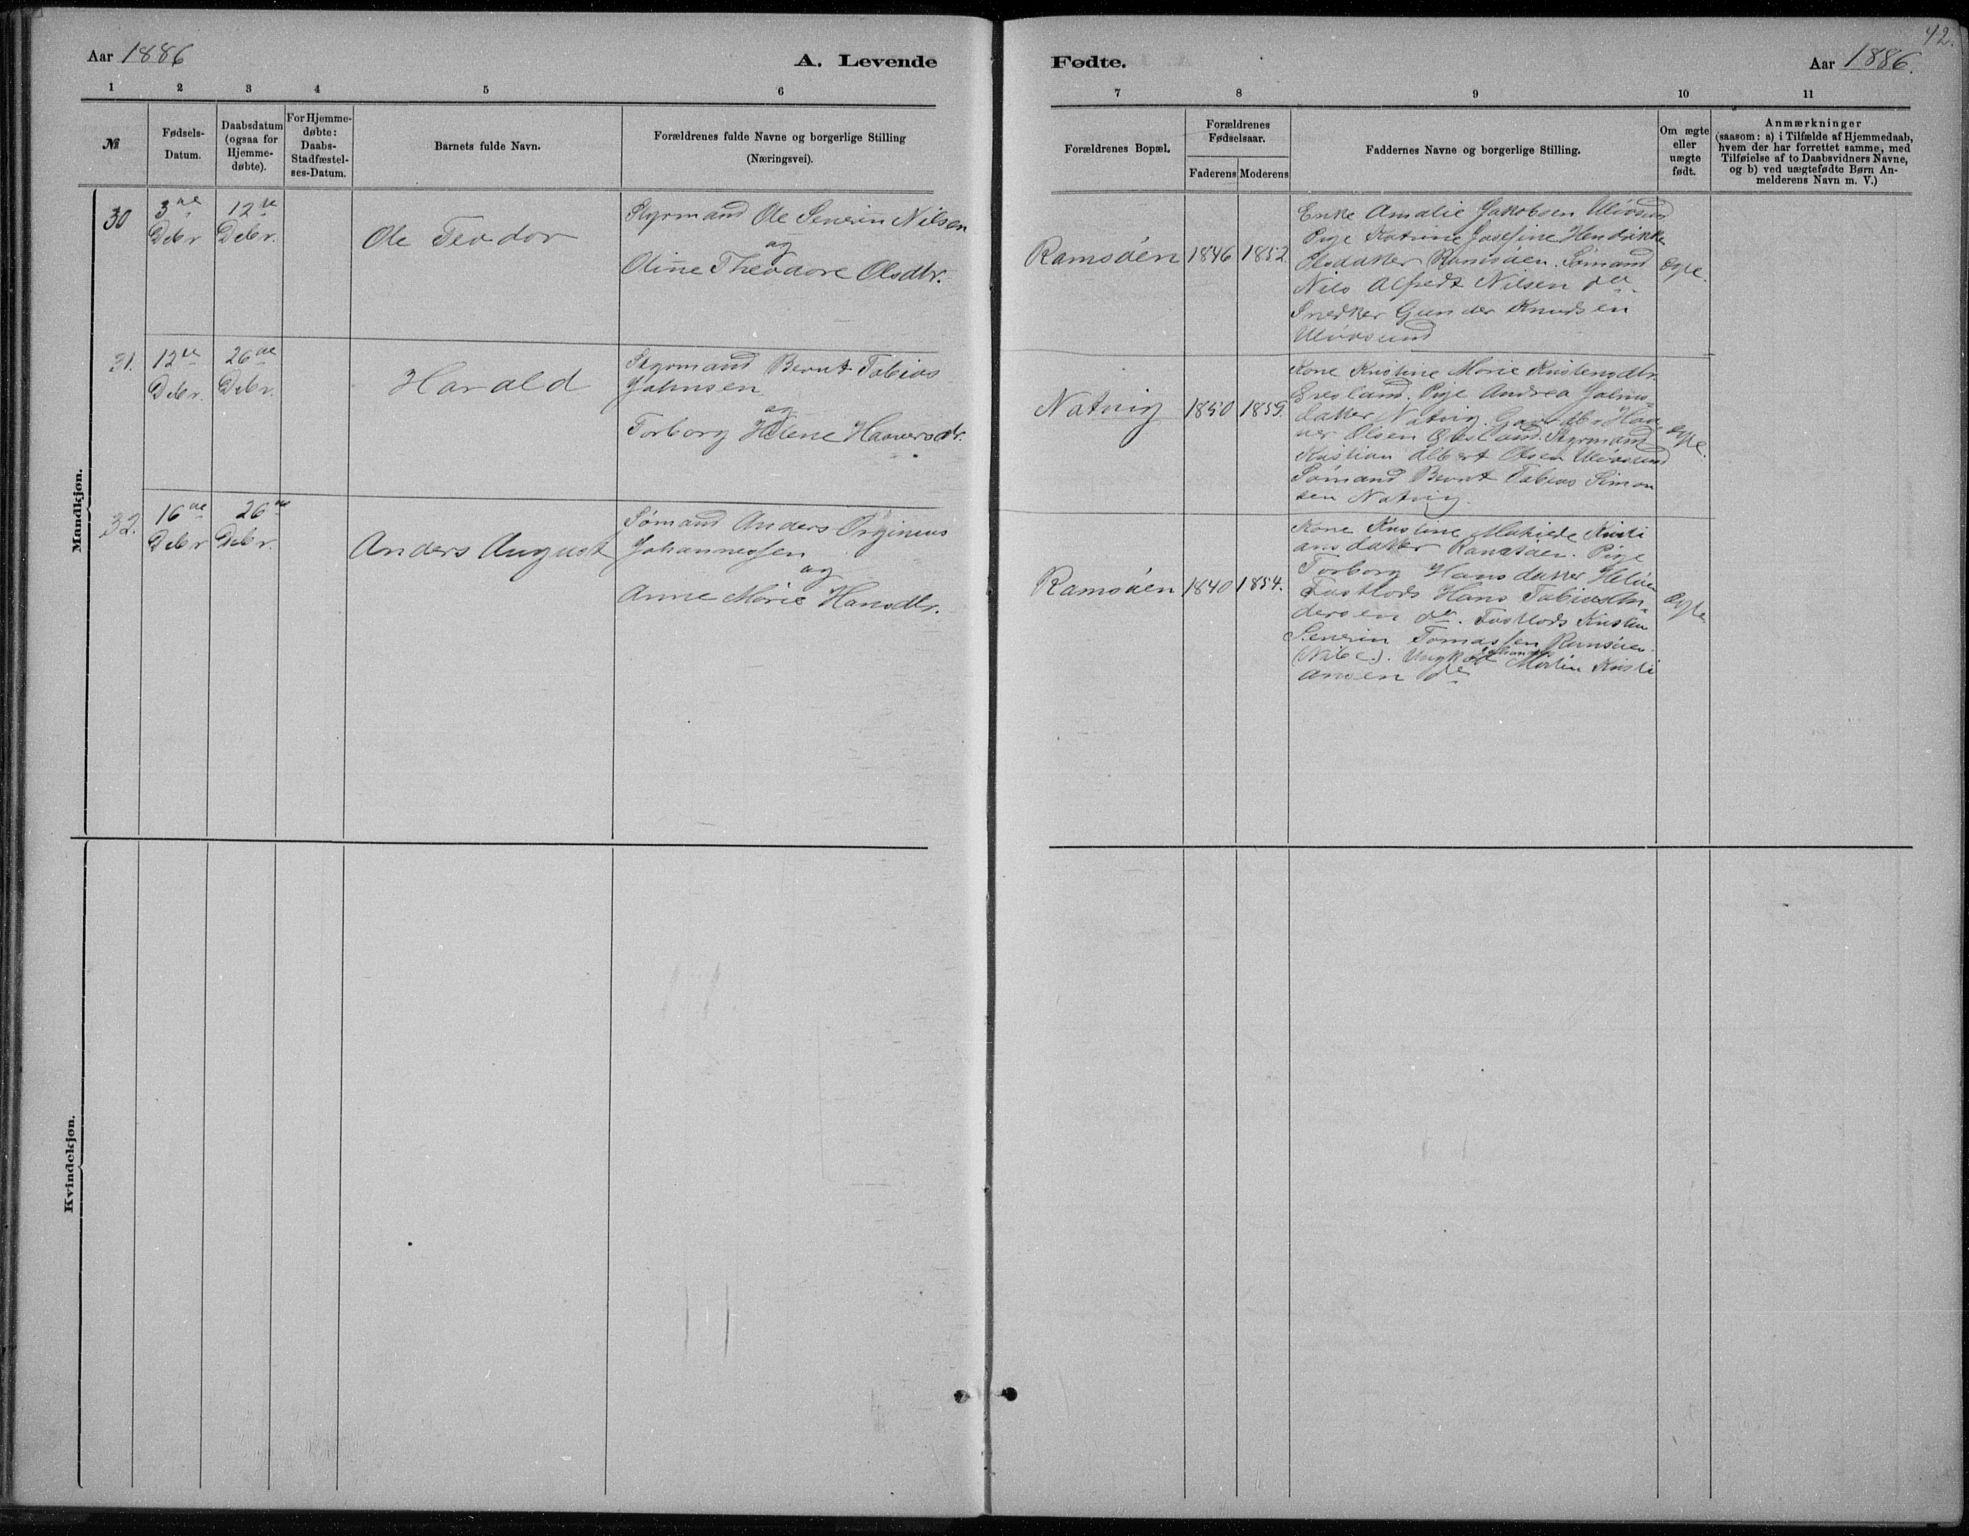 42.
Aar 1886
A. Levende
Fødte.
Aar 1886.
1 2 3 4 5 6
7 8 9 10 11
№
Fødsels-
Datum.
Daabsdatum
(ogsaa for
Hjemme-
døbte).
For Hjemme-
døbte:
Daabs-
Stadfæstel-
ses-Datum.
Barnets fulde Navn.
Forældrenes fulde Navne og borgerlige Stilling
(Næringsvei).
Forældrenes Bopæl.
Forældrenes
Fødselsaar.
Faderens Moderens
Faddernes Navne og borgerlige Stilling.
Om ægte
eller
uægte
født.
Anmærkninger
(saasom: a) i Tilfælde af Hjemmedaab,
hvem der har forrettet samme, med
Tilføielse af to Daabsvidners Navne,
og b) ved uægtefødte Børn An-
melderens Navn m. V.)
Mandkjøn.
30
3de
Debr
12te
Debr.
Ole Teodor
Styrmand Ole Severin Nilsen
og
Oline Theodore Olsdtr.
Ramsøen
1846
1852
Enke Amalie Jakobsen Ulvøsund
Pige Katrine Josefine Hendrikke
Olsdatter Ramsøen. Sømand
Nils Alfredt Nilsen do.
Snedker Gunder Knudsen
Ulvøsund
Ægte.
31.
12te
Debr.
26de
Debr.
Harald
Styrmand Bernt Tobias
Johnsen
og
Torborg Helene Haaversdtr.
Natvig
1850
1859.
Kone Kristine Marie Kristensdtr.
Pige Andrea
datter Natvig. Haa-
ver Olsen Styrmand
Kristian Albert Olsen Ulvøsund
Sømand Bernt Tobias Simon
sen Natvig.
Ægte.
32.
16de
Debr
26de
Debr.
Anders August
Sømand Anders
Johannessen
og
Anne Marie Hansdtr.
Ramsøen
1840
1854.
Kone Kristine Kristi
ansdatter Pige
Torborg Hansdatter
Hans Tobias An-
dersen do.
Severin Tomassen Ramsøen.
Johannes
Ungk. Martin Kristi
ansen do
Ægte
Kvindekjøn.